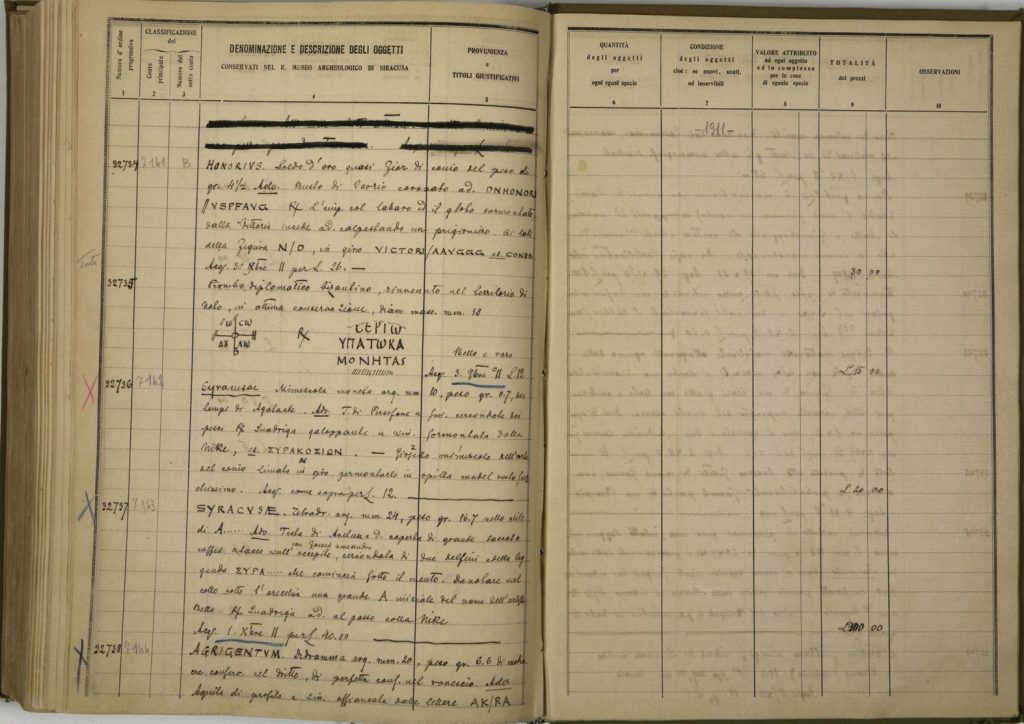 Numero d'ordine progressivo
CLASSIFICAZIONE del
Costo principale
Numero del sotto conto
DENOMINAZIONE E DESCRIZIONE DEGLI OGGETTI
CONSERVATI NEL R. MUSEO ARCHEOLOGICO DI SIRACUSA
PROVENIENZA
e
TITOLI GIUSTIFICATIVI
1 2 3 4 5
32734 7141 B HONORIVS. Soldo d'oro quasi fior di conio del peso di
gr. 4 1/2 Adv. Busto di Onorio coronato ad. DNHONORI
VSPFAVG R/ L'imp. col labaro ed il globo sormontato
dalla Vittoria incede ad. calpestando un prigioniero. Ai lati
della figura N/D, in giro VICTORI/AAVGGG es. CONOB
Acq. 3. Xbre 11 per L. 26. —
32735 Piombo diplomatico bizantino, rinvenuto nel territorio di
Noto, in ottima conservazione, diam. mass. mm. 18
R/ CEPΓIW
ΥΠΑΤWΚΑ
ΜΟΝΗΤΑΣ
Bello e raro
Acq. 3. Xbre 11 L. 12
32736 7142 Syracusae Minuscola moneta arg. mm. 10, peso gr. 0.7, dei
tempi di Agatocle. Adv. T. di Persefone a sin. circondata dai
pesci R/ Quadriga galoppante a sin. sormontata dalla
Nike, es. ΣΥΡΑΚΟΣΙΩΝ. —
del conio limato in giro per montarlo in
chissimo. Acq. come sopra per L. 12.
32737 7143 SYRACVSÆ. Tetradr. arg. mm. 24, peso gr. 16.7 netto stile
di A..... Adv. Testa di Aretusa a d. coperta di grande saccoto
con fascia a meandro
sull' occipite, circondata di due delfini e della leg
genda ΣΥΡΑ..... che comincia sotto il mento. Da notare nel
collo sotto l'orecchia una grande A iniziale del nome dell'artista
Bella. R/ Quadriga ad. al passo colla Nike
Acq. 1. Xbre 11 per L. 40.00
32738 7144 AGRIGENTVM. Didramma arg. mm. 20, peso gr. 6.6 di medio
cre conserv. nel diritto, di perfetta cons. nel rovescio Adv.
Aquila di profilo a sin. affiancata dalle lettere AK/RA
QUANTITÀ
degli oggetti
per
ogni eguale specie
CONDIZIONE
degli oggetti
cioè: se nuovi, usati,
od inservibili
VALORE ATTRIBUITO
ad ogni oggetto
ed in complesso
per le cose
di eguale specie
TOTALITÀ
dei prezzi
OSSERVAZIONI
6 7 8 9 10
-1911-
30 00
L. 15 00
L. 20 00
L. 100 00